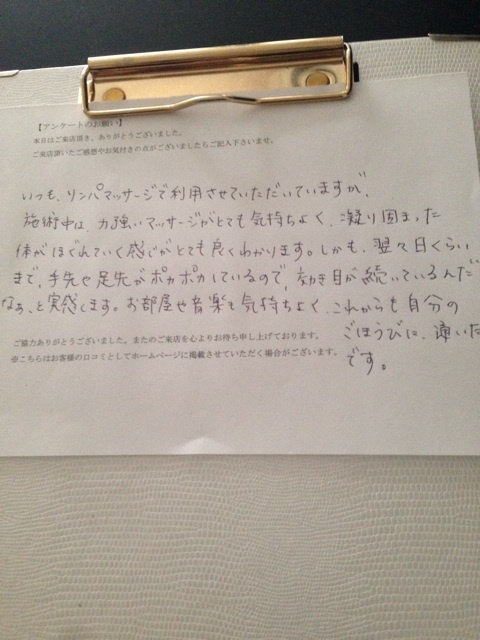 【アンケートのお願い】
本日はご来店頂き、ありがとうございました。
ご来店頂いたご感想やお気付きの点がございましたらご記入下さいませ。
いつも、リンパマッサージで利用させていただいていますが、
施術中は、力強いマッサージがとても気持ちよく、凝り固まった
体がほぐれていく感じがとても良くわかります。しかも、翌々日くらい
まで、手先や足先がポカポカしているので、効き目が続いているんだ
なぁ、と実感します。お部屋や音楽も気持ちよく、これからも自分の
ごほうびに、通いた
です。
ご協力ありがとうございました。またのご来店を心よりお待ち申し上げております。
※こちらはお客様の口コミとしてホームページに掲載させていただく場合がございます。